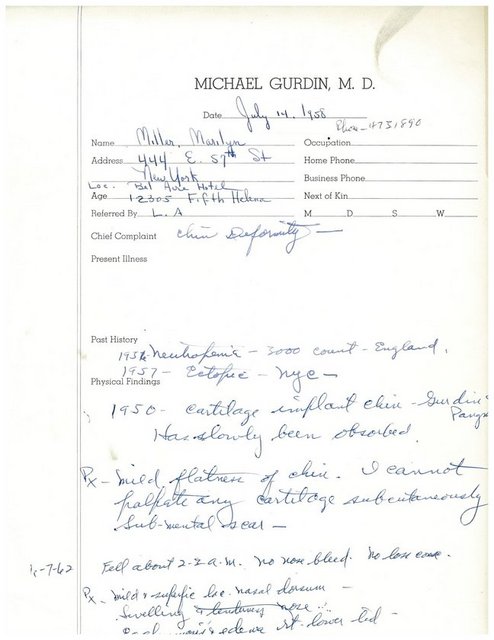 MICHAEL GURDIN, M. D.
Date July 14, 1958
Phone - 4731890
Name Miller, Marilyn
Occupation
Address 444 E. 57th St
Home Phone
New York
Business Phone
Loc. Bel Aire Hotel
Age 12305 Fifth Helena
Next of Kin
Referred By L. A
M D S W
Chief Complaint Chin Deformity —
Present Illness
Past History
1956 - Neutropenia - 3000 count - England.
1957 - Ectopic - NYC -
Physical Findings
1950 - cartilage implant chin - Gurdin
Has slowly been absorbed.
Px - Mild flatness of chin. I cannot
palpate any cartilage subcutaneously
Sub-mental scar -
6-7-62 Fell about 2-3 a.m. No nose bleed. No loss consc.
Px - Mild superfic lac. nasal dorsum -
Swelling & tenderness nose
edema rt. lower lid -